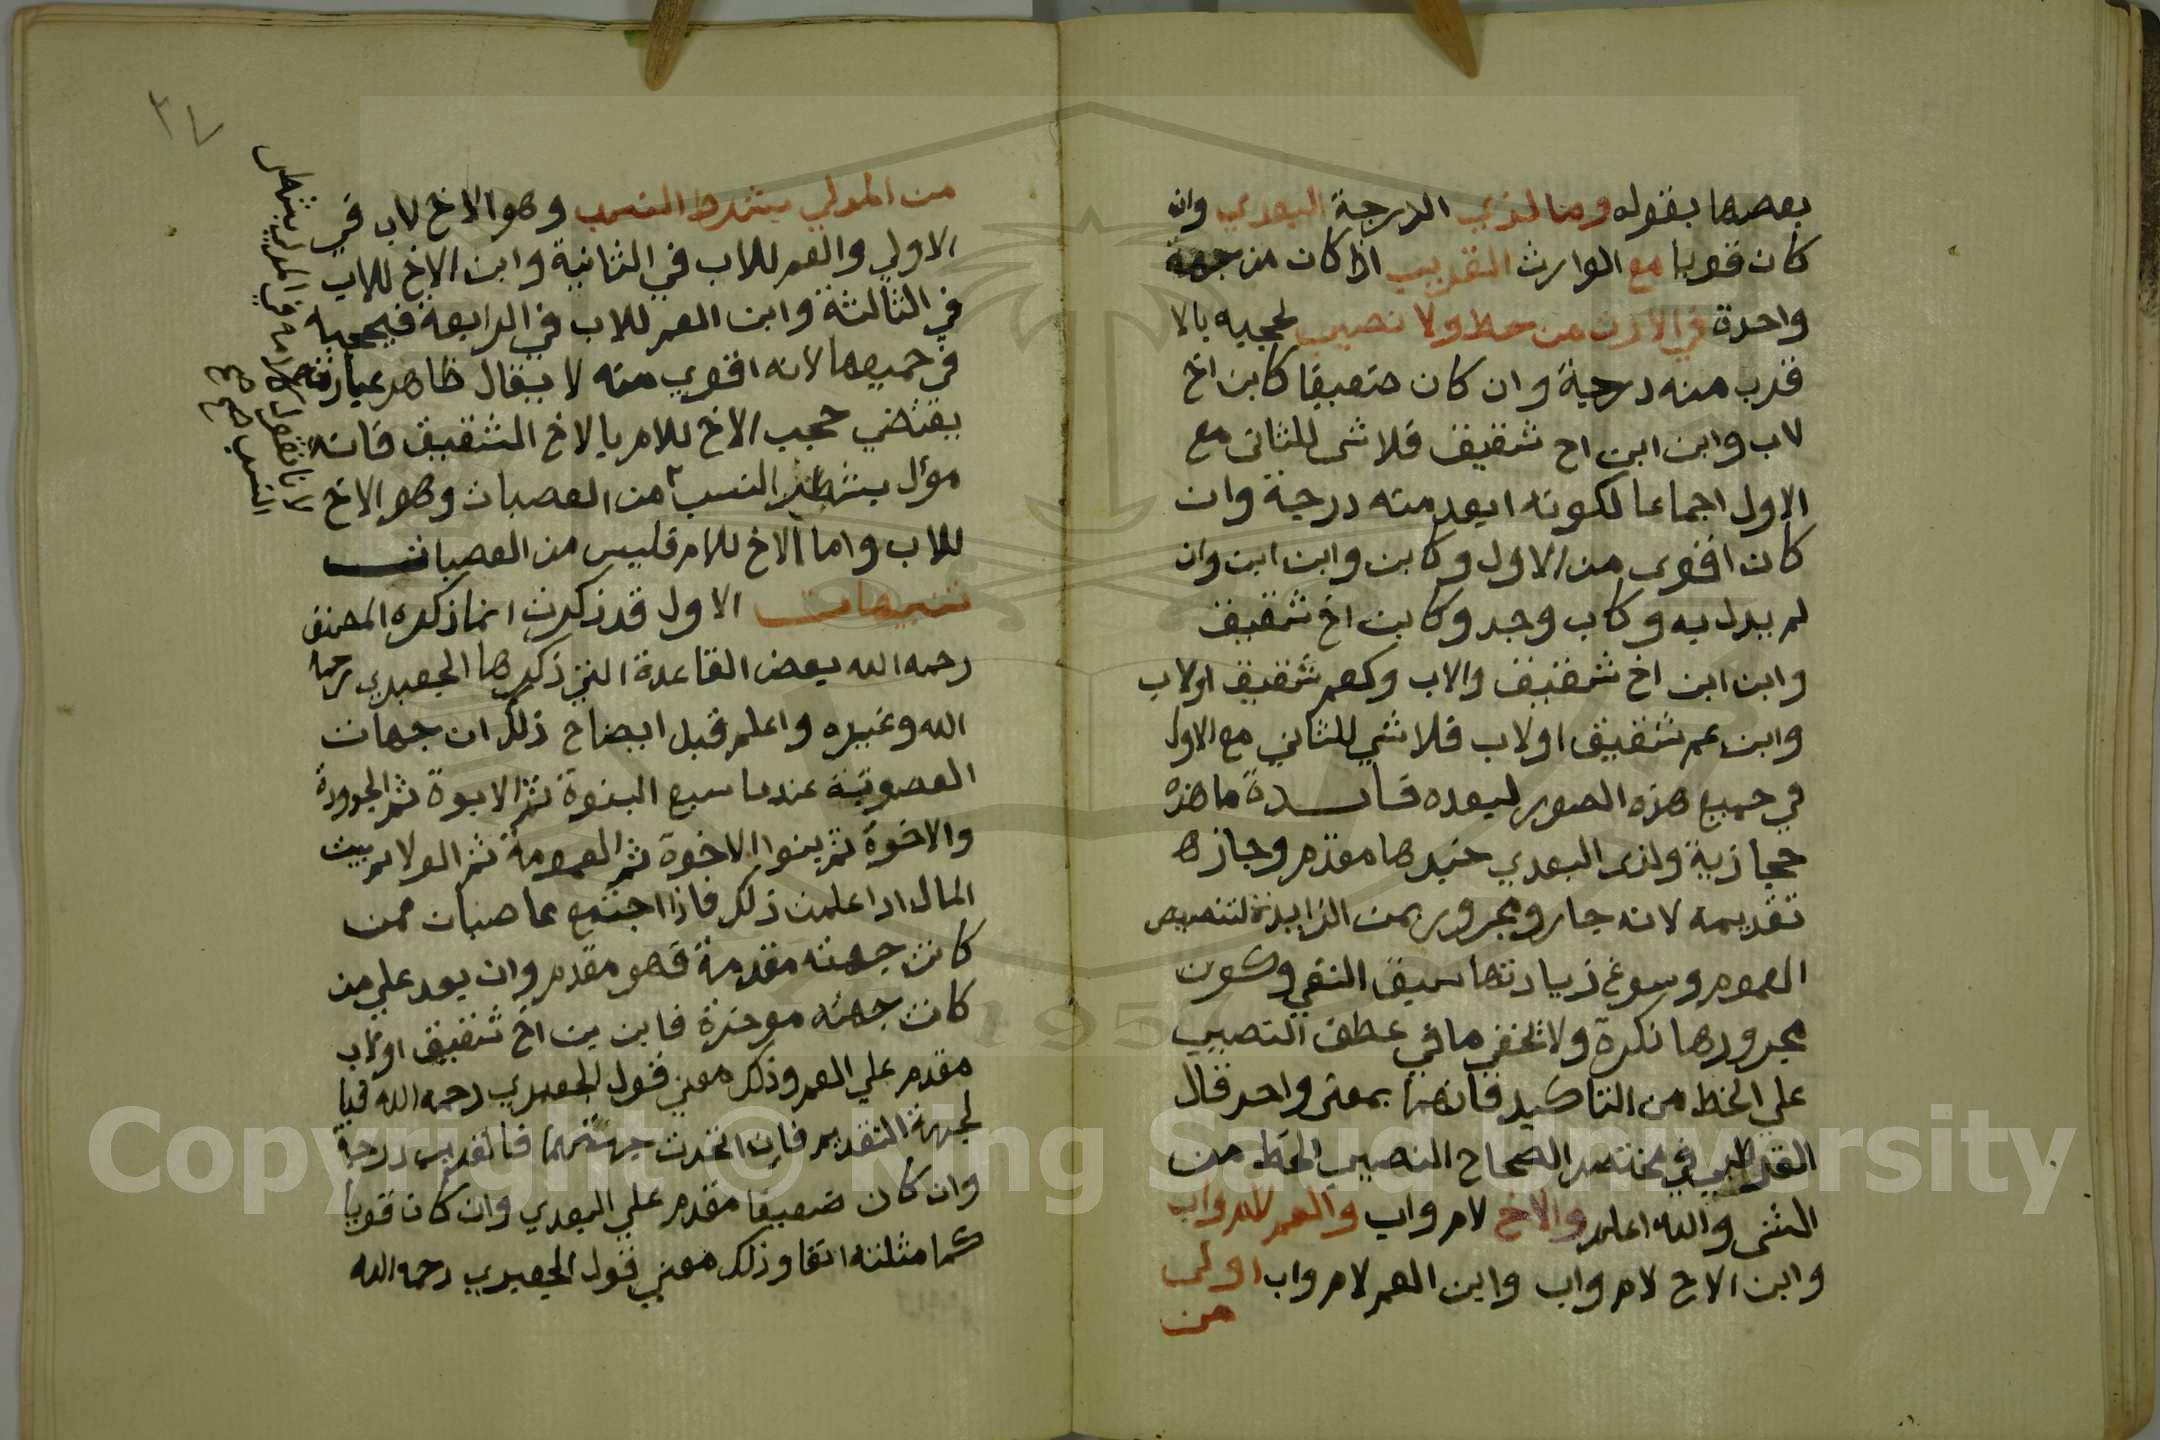 بعضها بقوله وما لذي الدرجة البعدي وان
كان قويا مع الوارث القريب اذا كان من جهة
واحدة في الارث من حظ ولا نصيب لحجبه بالا
قرب منه درجة وان كان ضعيفا كابن اخ
لاب وابن ابن اخ شقيق فلا شى للثانى مع
الاول اجماعا لكونه ابعد منه درجة وان
كان اقوى من الاول وكابن وابن ابن وان
لم يدل به وكاب وجد وكابن اخ شقيق
وابن ابن اخ شقيق والاب وكعم شقيق اولاب
وابن عم شقيق اولاب فلا شي للثاني مع الاول
في جميع هذه الصور لبعده فايدة ما هذه
حجازية ولذى البعدي خبرها مقدم وجاز
تقديمه لانه جار ومجرور بمن الزايدة لتنصيص
العموم وسوغ زيادتها سبق النفي وكون
مجرورها نكرة ولا يخفي ما في عطف النصيب
علي الحظ من التاكيد فانهما بمعنى واحد قال
القرطبي في مختصر الصحاح النصيب الحظ من
الشى والله اعلم والاخ لام واب والعم لام واب
وابن الاخ لام واب وابن العم لام واب اولى
من
٣٧
من المدلي بشطر النسب وهو الاخ لاب في
الاولي والعم للاب في الثانية وابن الاخ للاب
في الثالثة وابن العم للاب في الرابعة فيحجبه
في جميعها لانه اقوي منه لا يقال ظاهر عبارته
يقتضي حجب الاخ للام بالاخ الشقيق فانه
مؤل بشطر النسب من العصبات وهو الاخ
للاب واما الاخ للام فليس من العصبات
تنبيهات الاول قد ذكرت انما ذكره المصنف
رحمه الله بعض القاعدة التي ذكرها الجعبري رحمه
الله وغيره واعلم قبل ايضاح ذلك ان جهات
العصوبة عندنا سبع البنوة ثم الابوة ثم الجدودة
والاخوة ثم بنوا الاخوة ثم العمومة ثم الولا ثم بيت
المال اذا علمت ذلك فاذا اجتمع عاصبان فمن
كانت جهته مقدمة فهو مقدم وان بعد علي من
كانت جهته موخرة فابن بن اخ شقيق اولاب
مقدم علي العم وذلك معني قول الجعبري رحمه الله فبا
لجهة التقديم فان اتحدت جهتهما فالقريب درجة
وان كان ضعيفا مقدم علي البعدي وان كان قويا
كما مثلته انفا وذلك معني قول الجعبري رحمه الله
لانا نقول
النسب صح صح
Copyright © King Saud University
1957